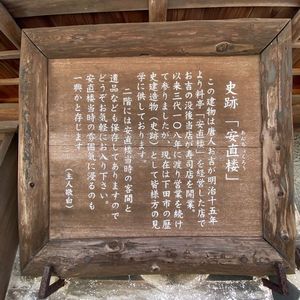 史跡「安直楼」
あんちょくろう
この建物は唐人お吉が明治十五年
より料亭「安直楼」を経営した店で
お吉の没後当店が寿司店を開業、
以来三代一〇八年に渡り営業を続け
て参りましたが、現在は下田市の歴
史建造物(史跡)として皆様方の見
学に供しております。
二階には安直楼当時の客間と
遺品なども保存してありますので
どうぞお気軽にお入り下さい。
安直楼当時の雰囲気に浸るのも
一興かと存じます
(主人敬白)